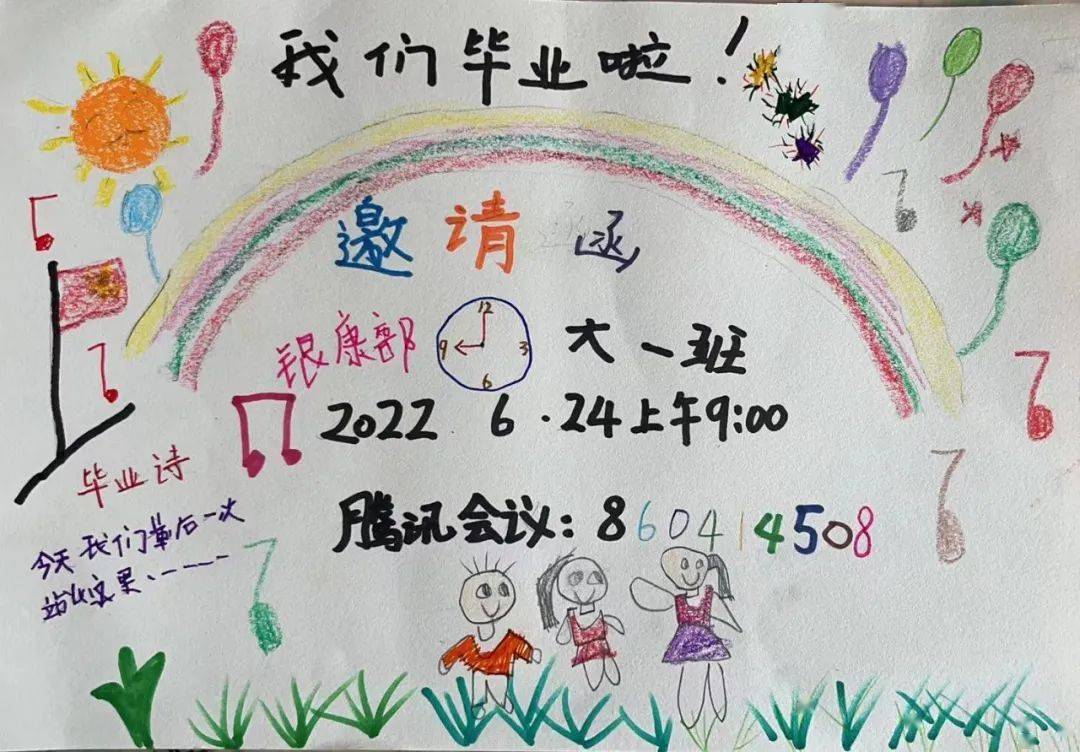 我们毕业啦！
邀请函
银康部
12
9 3
6
大一班
2022 6·24上午9:00
腾讯会议：860414508
毕业诗
今天我们最后一次
站在这里、----